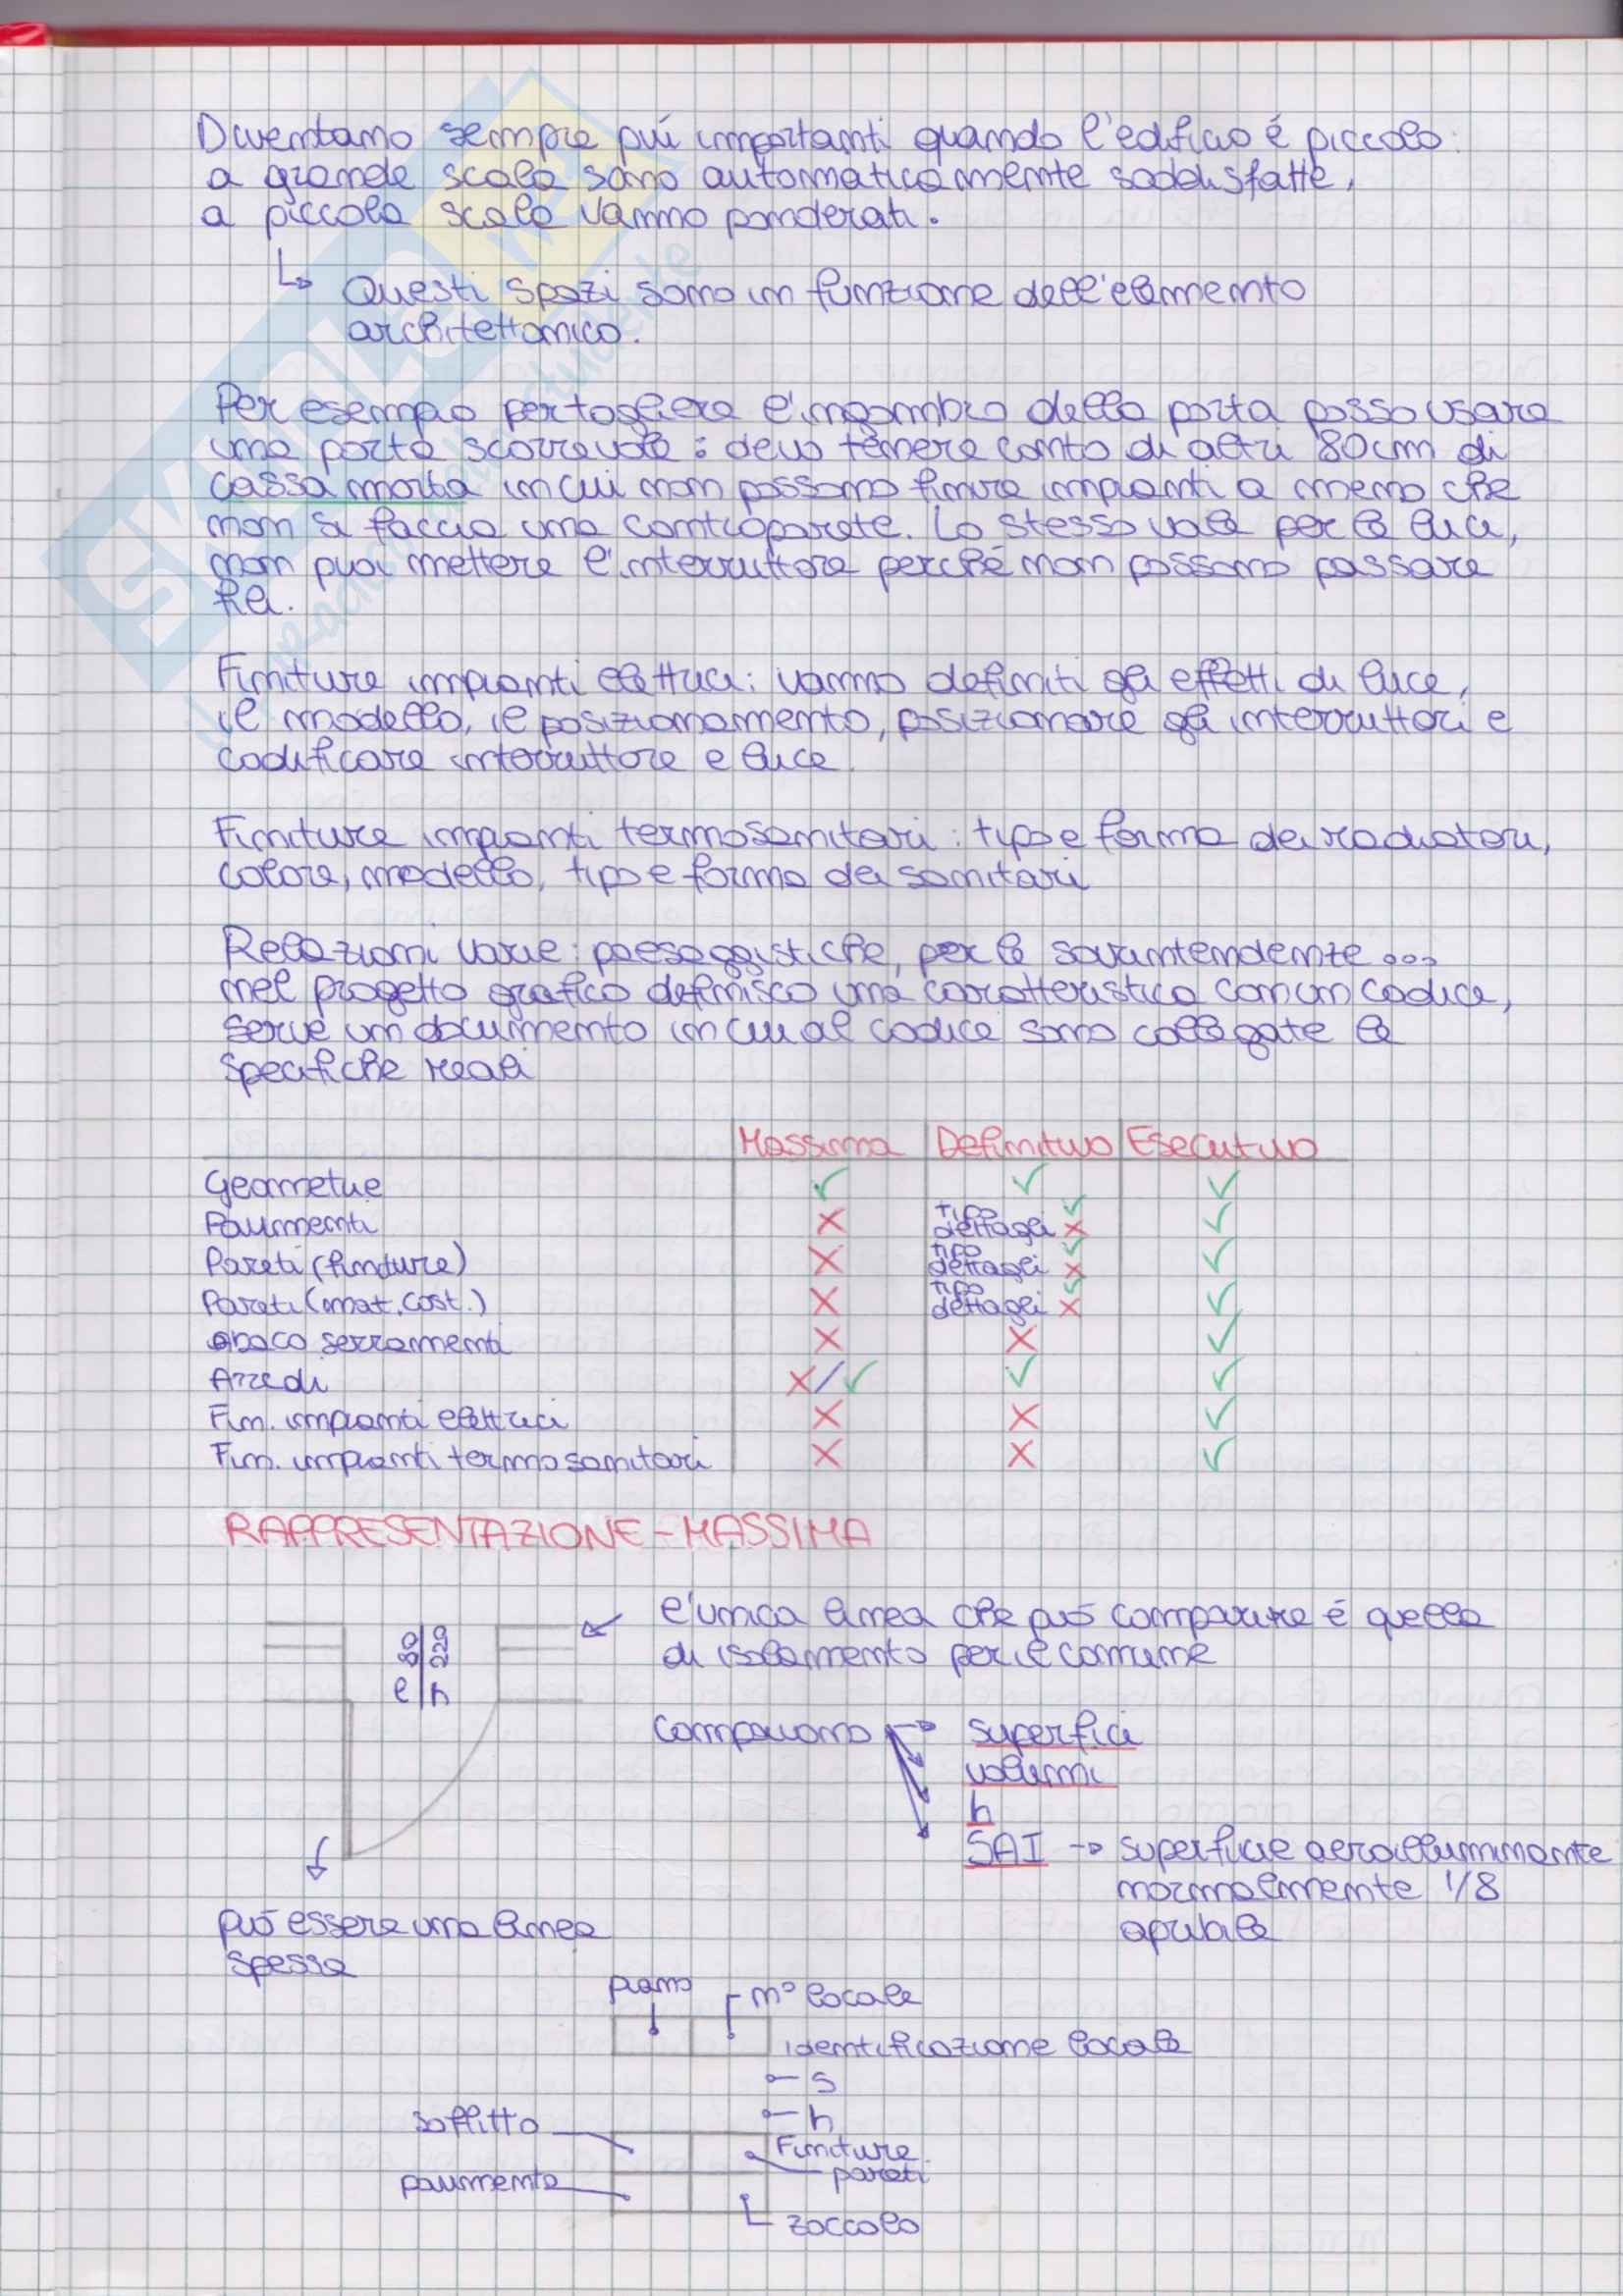 Diventano sempre piú importanti quando l'edificio é piccolo:
a grande scala sono automaticamente soddisfatte,
a piccola scala vanno ponderati.
↳ Questi spazi sono in funzione dell'elemento
architettonico.
Per esempio per togliere l'ingombro della porta posso usare
una porta scorrevole: devo tenere conto di altri 80cm di
cassa morta in cui non possono finire impianti a meno che
non si faccia una controparete. Lo stesso vale per le luci,
non puoi mettere l'interruttore perché non possono passare
fili.
Finiture impianti elettrici: vanno definiti gli effetti di luce,
il modello, il posizionamento, posizionare gli interruttori e
codificare interruttore e luce.
Finiture impianti termosanitari: tipo e forma dei radiatori,
colore, modello, tipo e forma dei sanitari
Relazioni varie: paesaggistiche, per le sovrintendenze...
nel progetto grafico definisco una caratteristica con un codice,
serve un documento in cui al codice sono collegate le
specifiche reali
Massima Definitivo Esecutivo
Geometrie ✓ ✓ ✓
Pavimenti ✗ tipo ✓ dettagli ✗ ✓
Pareti (finiture) ✗ tipo ✓ dettagli ✗ ✓
Pareti (mat. cost.) ✗ tipo ✓ dettagli ✗ ✓
abaco serramenti ✗ ✗ ✓
Arredi ✗/✓ ✓ ✓
Fin. impianti elettrici ✗ ✗ ✓
Fin. impianti termosanitari ✗ ✗ ✓
RAPPRESENTAZIONE - MASSIMA
l'unica linea che può comparire è quella
di isolamento per il comune
l 80
h 220
Compaiono → superfici
volumi
h
SAI → superficie aeroilluminante
normalmente 1/8
apribile
può essere una linea
spessa
piano
n° locale
identificazione locale
s
h
soffitto
Finiture
pareti
pavimento
zoccolo